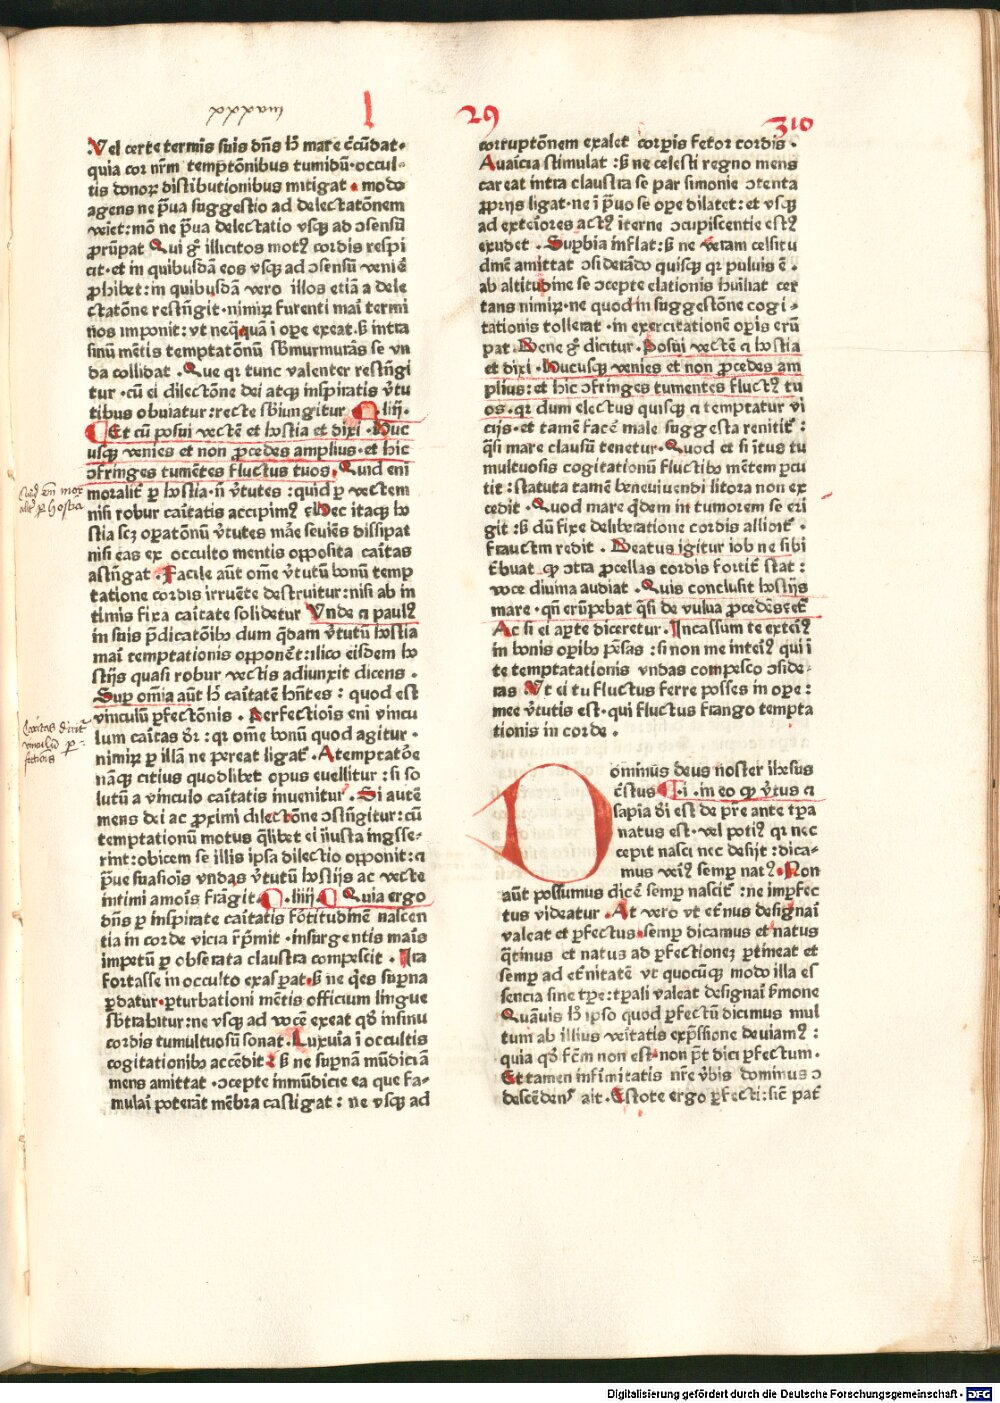 l 29 310
Vel certe termis suis dñs h̄ mare c̄cūdat·
quia cor nr̄m temptōnibus tumidū·occul-
tis donoꝝ distibutionibus mitigat · modo
agens ne ꝑ̄ua suggestio ad delectatōnem
ueiet: mō ne ꝑ̄ua delectatio vsqꝫ ad ɔsensū
ꝓrūpat Qui gͦ illicitos motꝰ cordis respi
cit·et in quibusdā eos vsqꝫ ad ɔsensū veniē
ꝓhibet: in quibusdā vero illos etiā a dele
ctatōne restn̄git·nimiꝝ furenti mai termi
nos imponit: vt neq̄quā ī oꝑe exeat·ß intra
sinū mētis temptatōnū sb̄murmurās se vn
da collidat · Que qꝛ tunc valenter restn̄gi
tur ·cū ei dilectōne dei atqꝫ inspiratis v̄tu
tibus obuiatur: recte sb̄iungitur liij.
Et cū posui vectē et hostia et dixi · Huc
usqꝫ venies et non ꝓcedes amplius·et hic
ɔfringes tumētes fluctus tuos · Quid eni
moralit̄ ꝑ hostia·n̄ v̄tutes : quid ꝑ vectem
nisi robur caītatis accipimꝰ Hec itaqꝫ ho
stia scꝫ oꝑatōnū v̄tutes mae seuiēs dissipat
nisi eas ex occulto mentis opposita caītas
astn̄gat · Facile aūt om̄e v̄tutū bonū temp
tatione cordis irruēte destruitur: nisi ab in
tīmis fixa caītate solidetur Vnde ⁊ paulꝰ
in suis p̄dicatōibꝰ dum q̄dam v̄tutū hostia
mai temptationis opponēt: ilico eisdem ho
stijs quasi robur vectis adiunxit dicens ·
Suꝑ om̄ia aūt h̄ caītatē hn̄tes : quod est
vinculū ꝑfectōnis · Perfectiōis eni vincu
lum caītas dr̄: qꝛ om̄e bonū quod agitur ·
nimiꝝ ꝑ illā ne ꝑereat ligat̄ · A temptatōe
nāqꝫ citius quodlibet opus euellitur : si so
lutū a vinculo caītatis inuenitur · Si autē
mens dei ac ꝓximi dilectōne ɔstn̄gitur: cū
temptationū motus q̄libet ei iniusta ingsse-
rint: obicem se illis ipsa dilectio opponit: ⁊
p̄ue suasiōis vndas v̄tutū hostijs ac vecte
intimi amoīs frāgit · liiij. Quia ergo
dn̄s ꝑ inspirate caītatis fōtitudinē nascen
tia in corde vicia r̄p̄mit ·insurgentis maīs
impetū ꝑ obserata claustra compescit · Ira
fortasse in occulto exasꝑat·ß ne q̄es suꝑna
ꝑdatur·ꝑturbationi mētis officium lingue
sb̄trahitur: ne vsqꝫ ad vocē exeat qd̄ insinu
cordis tumultuosū sonat · Luxuīa ī occultis
cogitationibꝰ accēdit: ß ne suꝑnā mūdiciā
mens amittat ·ɔcepte inmūdicie ea que fa-
mulai poterāt mēbra castigat : ne vsqꝫ ad
corruptōnem exalet corꝑis fetor cordis ·
Auaīcia stimulat : ß ne celesti regno mens
careat intra claustra se par simonie ɔtenta
ꝓprijs ligat·ne ī p̄uo se oꝑe dilatet: et vsqꝫ
ad exteīores actꝰ īterne ɔcupiscentie estꝰ
exudet · Suꝑbia inflat: ß ne veram celsitu
dinē amittat ɔsiderādo quisqꝫ qꝛ puluis ē ·
ab altitudine se ɔcepte elationis hūiliat cer
tans nimiꝝ·ne quod in suggestōne cogi-
tationis tollerat ·in exercitationē oꝑis erū
pat · Bene gͦ dicitur · Posui vectē ⁊ hostia
et dixi · Hucusqꝫ venies et non ꝓcedes am
plius: et hic ɔfringes tumentes fluctꝰ tu
os ·qꝛ dum electus quisqꝫ ⁊ temptatur vi
cijs·et tamē facē male suggesta renitit̄ :
q̄si mare clausū tenetur · Quod et si ītus tu
multuosis cogitationū fluctibꝰ mētem ꝑcu
tit : statuta tamē beneuiuendi litora non ex
cedit · Quod mare q̄dem in tumorem se eri
git : ß dū fixe deliberatione cordis allidit̄ ·
fractm redit · Beatus igitur iob ne sibi
t̄buat qꝫ ɔtra ꝓcellas cordis fortit̄ stat :
voce diuina audiat · Quis conclusit hostijs
mare · qn̄ erūpebat q̄si de vulua ꝓcedēs et̄
Ac si ei aꝑte diceretur · Incassum te exteīꝰ
in bonis oꝑibꝰ pēsas : si non me inteīꝰ qui ī
te temptatationis vndas compesco ɔside-
ras Vt ei tu fluctus ferre posses in oꝑe :
mee v̄tutis est·qui fluctus frango tempta
tionis in corde ·
Dominus deus noster ihesus
c̄stus i. in eo qꝫ v̄tus ⁊
sapia di est de pre ante tꝑa
natus est·vel potiꝰ qꝛ nec
cepit nasci nec desijt : dica-
mus veiꝰ semꝑ natꝰ · Non
aūt possumus dicē semꝑ nascit̄ : ne imꝑfec
tus videatur · At vero vt et̄nus designai
valeat et ꝑfectus·semꝑ dicamus et natus
q̄tinus et natus ad ꝑfectionez ꝑtineat et
semꝑ ad et̄nitatē vt quocūqꝫ modo illa es
sencia sine tꝑe: tꝑali valeat designai s̄mone
Quāuis h̄ ipso quod ꝑfectū dicimus mul
tum ab illius veītatis exp̄ssione deuiamꝰ :
quia qd̄ fc̄m non est·non p̄t dici ꝑfectum·
Et tamen infirmitatis nr̄e v̄bis dominus ɔ
descēdens ait · Estote ergo ꝑfecti: sic̄ pat̄
Digitalisierung gefördert durch die Deutsche Forschungsgemeinschaft - DFG